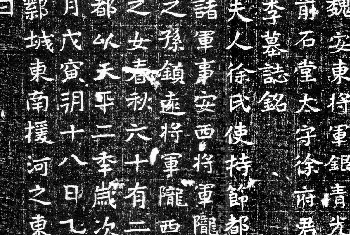 魏安東將軍銀青光
前石堂太守徐府君
李墓誌銘
夫人徐氏使持節都
諸軍事安西將軍隴
之孫鎮遠將軍隴西
之女春秋六十有二
都以天平二季歲次
月戊寅朔十八日乙
鄴城東南援河之東
日